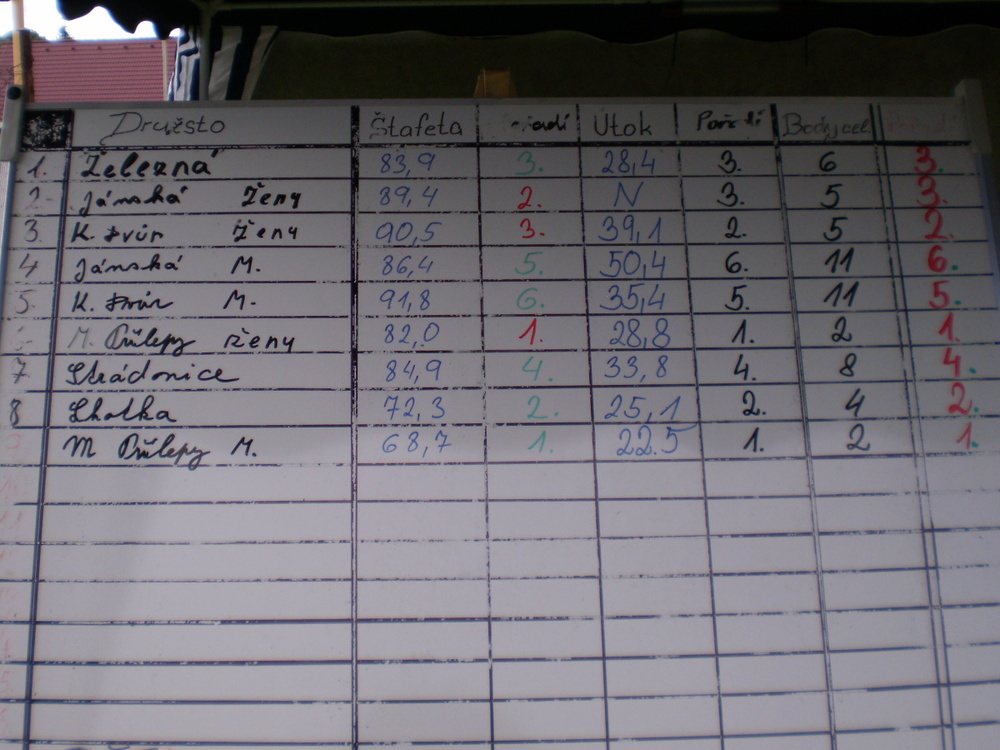 Družsto Štafeta Útok Pořadí Body cel
1. Železná 83,9 3. 28,4 3. 6 3.
2. Jánská Ženy 89,4 2. N 3. 5 3.
3. K. Dvůr Ženy 90,5 3. 39,1 2. 5 2.
4 Jánská M. 86,4 5. 50,4 6. 11 6.
5. K. Dvůr M. 91,8 6. 35,4 5. 11 5.
M. Průlepy ženy 82,0 1. 28,8 1. 2 1.
7 Stradonice 84,9 4. 33,8 4. 8 4.
8 Lhotka 72,3 2. 25,1 2. 4 2.
9 M Průlepy M. 68,7 1. 22.5 1. 2 1.